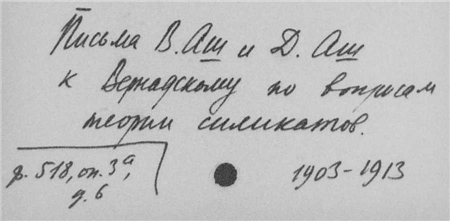 Письма В. Аш и Д. Аш
к Вернадскому по вопросам
теории силикатов.
ф. 518, оп. 3а,
д. 6
1903-1913